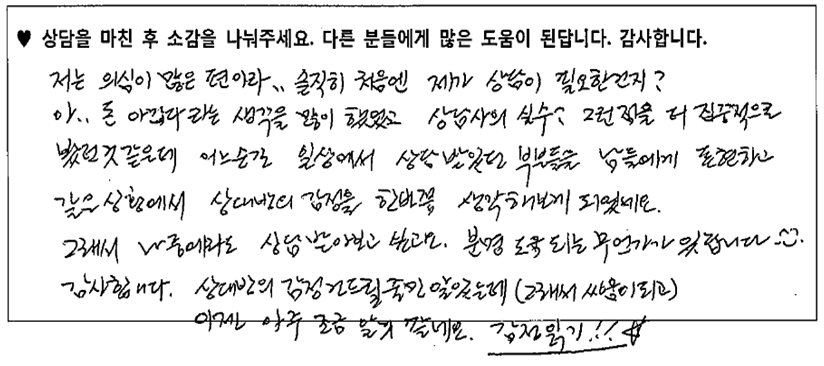 ♥ 상담을 마친 후 소감을 나눠주세요. 다른 분들에게 많은 도움이 된답니다. 감사합니다.
저는 의식이 많은 편이라.. 솔직히 처음엔 제가 상담이 필요한건지?
아.. 돈 아깝다 라는 생각을 많이 했었고 상담사의 실수? 그런적을 더 집중적으로
봤던것 같은데 어느순간 일상에서 상담 받았던 부분들을 남들에게 표현하고
같은 상황에서 상대방의 감정을 한번쯤 생각해보게 되었네요.
그래서 나중에라도 상담 받아보고 싶고요. 분명 도움 되는 무언가가 있답니다
감사합니다. 상대방의 감정 건드릴 줄만 알았는데 (그래서 싸움이 되고)
이젠 아주 조금 알거 같네요. 감정 읽기!!